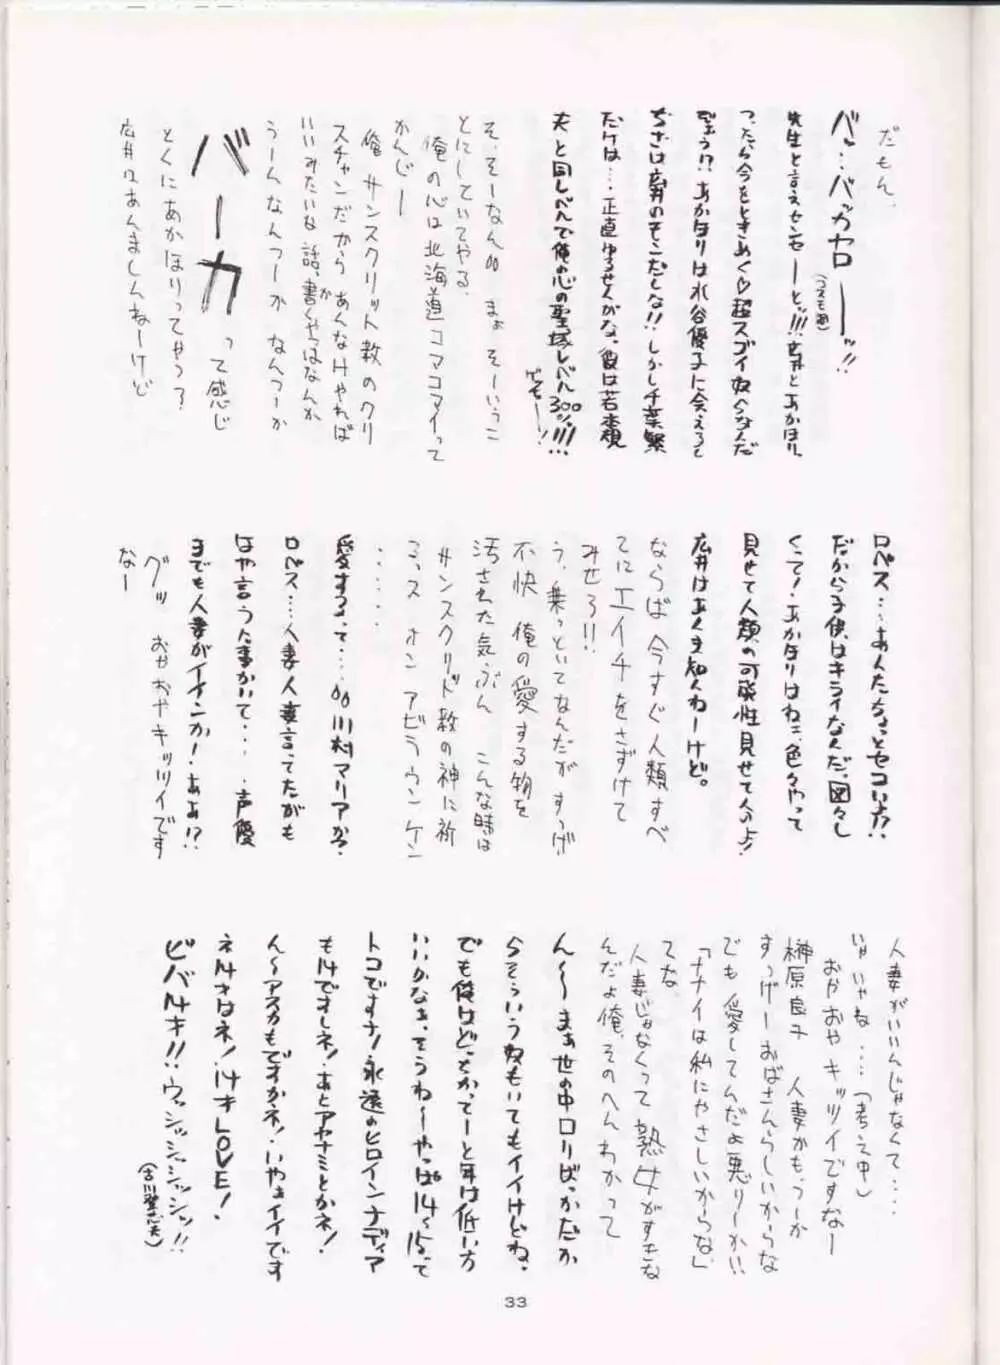 だもん。
バ…バッカヤローッ!!
(コスモ調)
先生と言えセンセーーとッ!!!広井とあかほり
ったら今をときめく♡超スゴイ奴らなんだ
ぞぉう!?あかほりは水谷優子に会えるって
ちきさは広井のそこだしな!!しかし千葉繁
だけは…正直ゆるせんがな。彼は若本規
夫と同レベルで俺の心の聖域レベル300%!!!
ゲェモー!
そ、そーなん〃まぁ そーいうこ
とにしていてやる。
俺の心は北海道コマコマイって
かんじー
俺 サンスクリット教のクリ
スチャンだから あんなけやれば
いいみたいな話っか書くやつはなんか
うーんなんつーか なんつーか
バーカ って感じ
とくにあかほりってやつ?
広井はあんましんねーけど
ロペス…あんたちょっとセコい!?
だから子供はキライなんだ。図々し
くって!あかほりはねェ、色々やって
見せて人類の可能性見せて人のよ!
広井はあくま知んねーけど。
ならば 今すぐ人類すべ
てにエイチをさずけて
みせろ!!
う、乗っといてなんだが すっげ
不快 俺の愛する物を
汚された気ぶん こんな時は
サンスクリット教の神に祈
ろっス オン アビラウンケン
・・・・・
愛するって…〃川村マリアか?
ロペス…人妻人妻言ってたがも
はや言うた事かいて・・・声優
までも人妻がイインか!ああ!?
グッ おやおやキッツイです
なー
人妻がいいんじゃなくて…
いや いやね…(考え中)
おやおや キッツイですなー
榊原良子 人妻かも、つーか
すっげーおばさんらしいからな
でも 愛してんだよ悪りーかい!
「ナナイは私にやさしいからな」
てな。
人妻じゃなくって 熟女がすきな
んだよ俺、そのへんわかって
ん〜〜まぁ世の中ロリばっかだか
らそういう奴もいてもイイけどね。
でも俺はどっちかってーと年は低い方
いいかなぁ、そうねーやっぱ14〜15って
トコですナ!永遠のヒロインナディア
も14ですしネ!あとアヤナミとかネ!
ん〜アスカもですかネ!いやぁイイです
ネ14才はネ!14才LOVE!
ビバ14才!!ウッシッシッシッシッ!!
(古川登志夫)
33